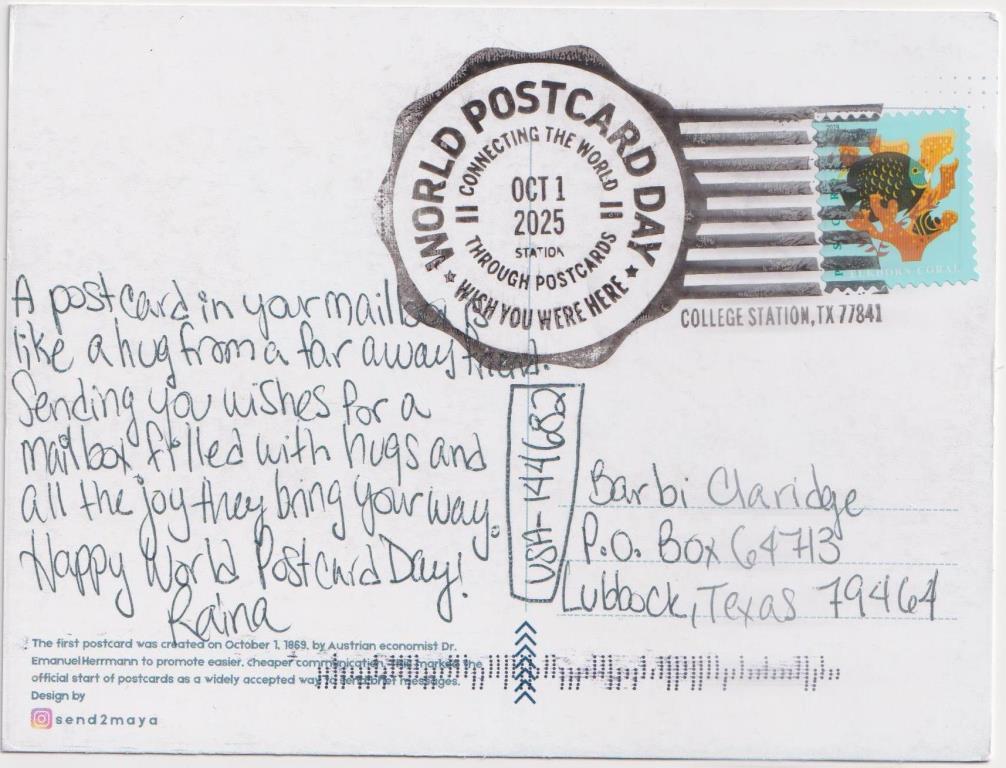 WORLD POSTCARD DAY
CONNECTING THE WORLD
OCT 1
2025
STATION
THROUGH POSTCARDS
WISH YOU WERE HERE
ELKHORN CORAL
COLLEGE STATION, TX 77841
A postcard in your mailbox is
like a hug from a far away friend.
Sending you wishes for a
mailbox filled with hugs and
all the joy they bring your way.
Happy World Postcard Day!
Raina
USA-144682
Barbi Claridge
P.O. Box 64713
Lubbock, Texas 79464
The first postcard was created on October 1, 1869, by Austrian economist Dr.
Emanuel Herrmann to promote easier, cheaper communication. This marked the
official start of postcards as a widely accepted way to send brief messages.
Design by
send2maya